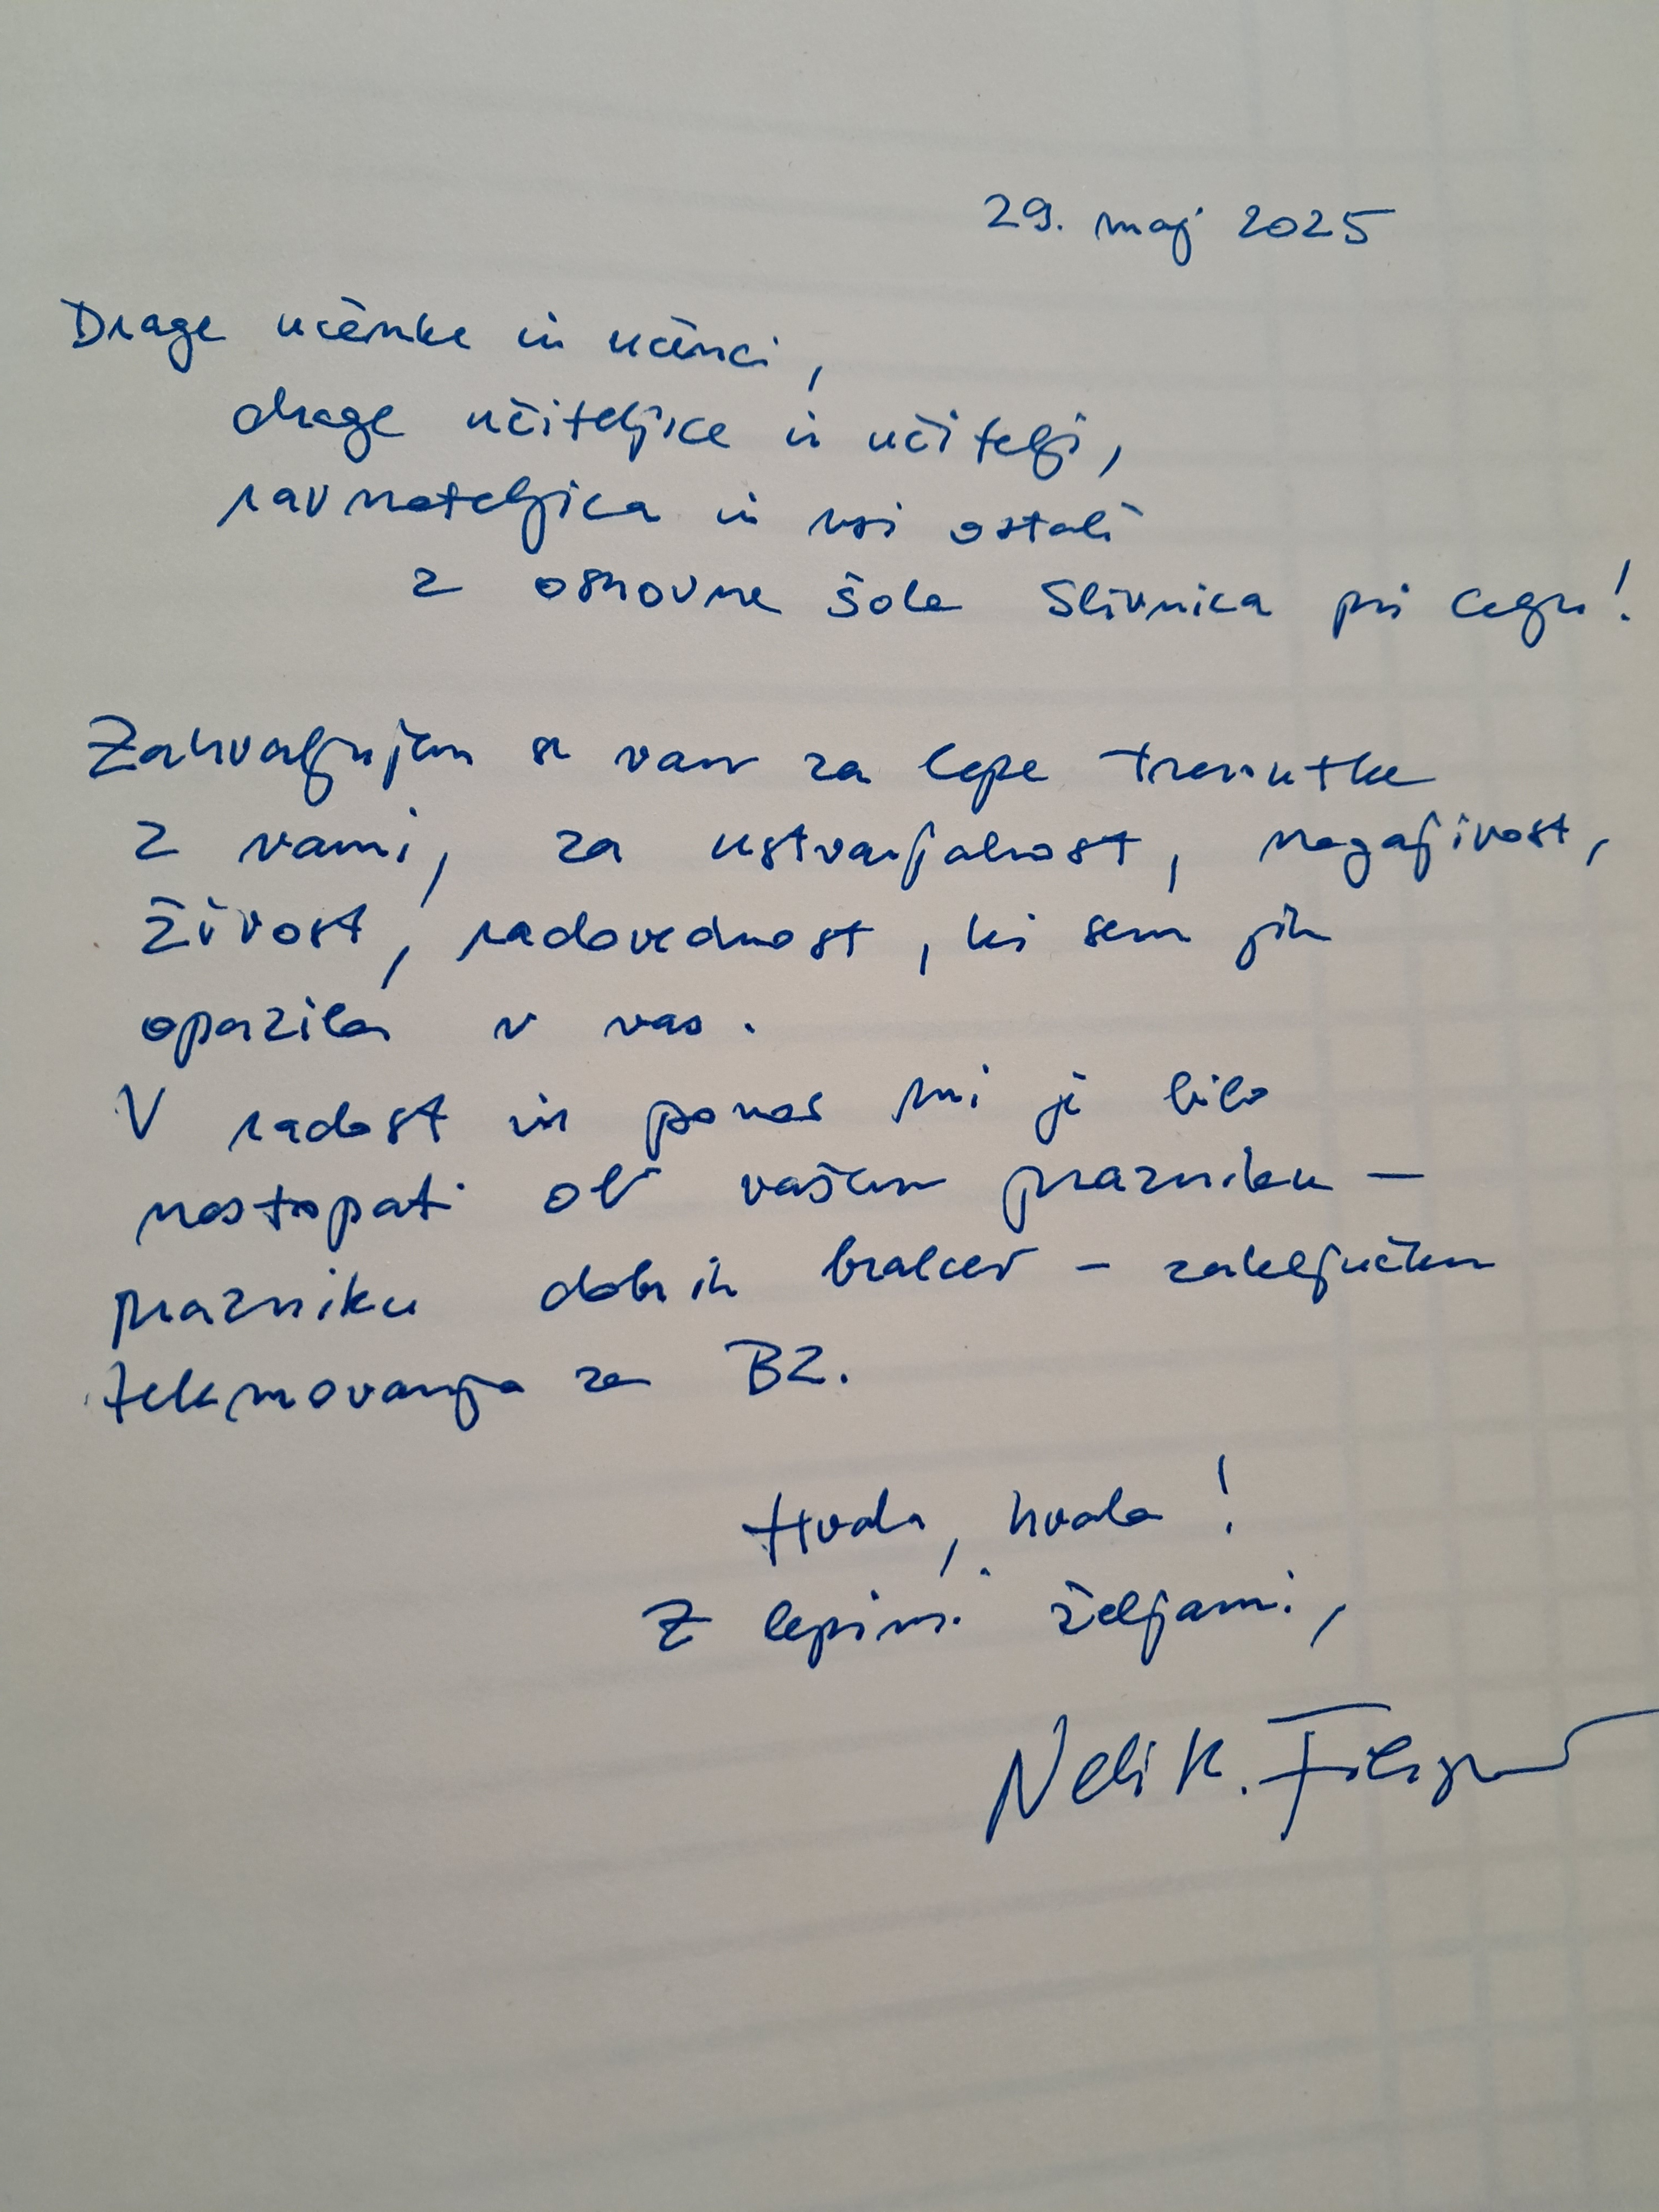 29. maj 2025
Drage učenke in učenci,
drage učiteljice in učitelji,
ravnateljica in vsi ostali
z osnovne šole Slivnica pri Celju!
Zahvaljujem se vam za lepe trenutke
z vami, za ustvarjalnost, nagajivost,
živost, radovednost, ki sem jih
opazila v vas.
V radost in ponos mi je bilo
nastopati ob vašem prazniku –
prazniku dobrih bralcev – zaključku
tekmovanja za BZ.
Hvala, hvala!
Z lepimi željami,
Neli K. Filipić